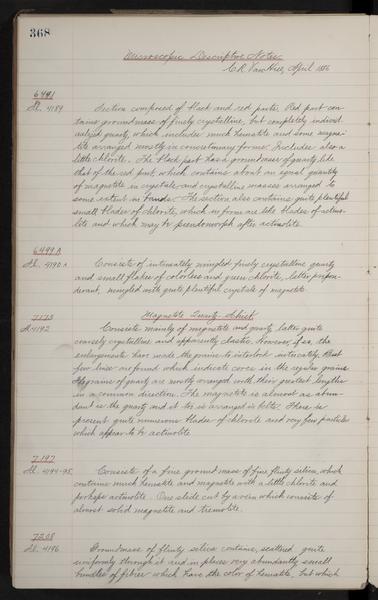 368
Microscopic Descriptive Notes
C.R. Van Hise, April 1886
6491
Sl. 4189
Section composed of black and red parts. Red part con-
tains groundmass of finely crystalline, but completely individ-
ualized quartz, which includes much hematite and some magne-
tite arranged mostly in concretionary forms. Includes also a
little chlorite. The black part has a groundmass of quartz like
that of the red part which contains about an equal quantity
of magnetite in crystals and crystalline masses arranged to
some extent in bands. The section also contains quite plentiful
small blades of chlorite, which in forms are like blades of actino-
lite and which may be pseudomorph after actinolite.
6499 A
Sl. 4190 A
Consists of intimately mingled finely crystalline quartz
and small flakes of colorless and green chlorite, latter prepon-
derant, mingled with quite plentiful crystals of magnetite.
Magnetite Quartz-Schist
7173
Sl. 4192
Consists mainly of magnetite and quartz, latter quite
coarsely crystalline and apparently clastic. However, if so, the
enlargements have made the grains to interlock intricately. But
few lines are found which indicate cores in the regular grains.
The grains of quartz are mostly arranged with their greatest lengths
in a common direction. The magnetite is almost as abun-
dant as the quartz and it too is arranged in belts. There is
present quite numerous blades of chlorite and very few particles
which appear to be actinolite.
7197
Sl. 4194-95
Consists of a fine groundmass of fine flinty silica, which
contains much hematite and magnetite with a little chlorite and
perhaps actinolite. One slide cut by a vein which consists of
almost solid magnetite and tremolite.
7208
Sl. 4196
Groundmass of flinty silica contains, scattered quite
uniformly through it and in places very abundantly small
bundles of fibres which have the color of hematite, but which